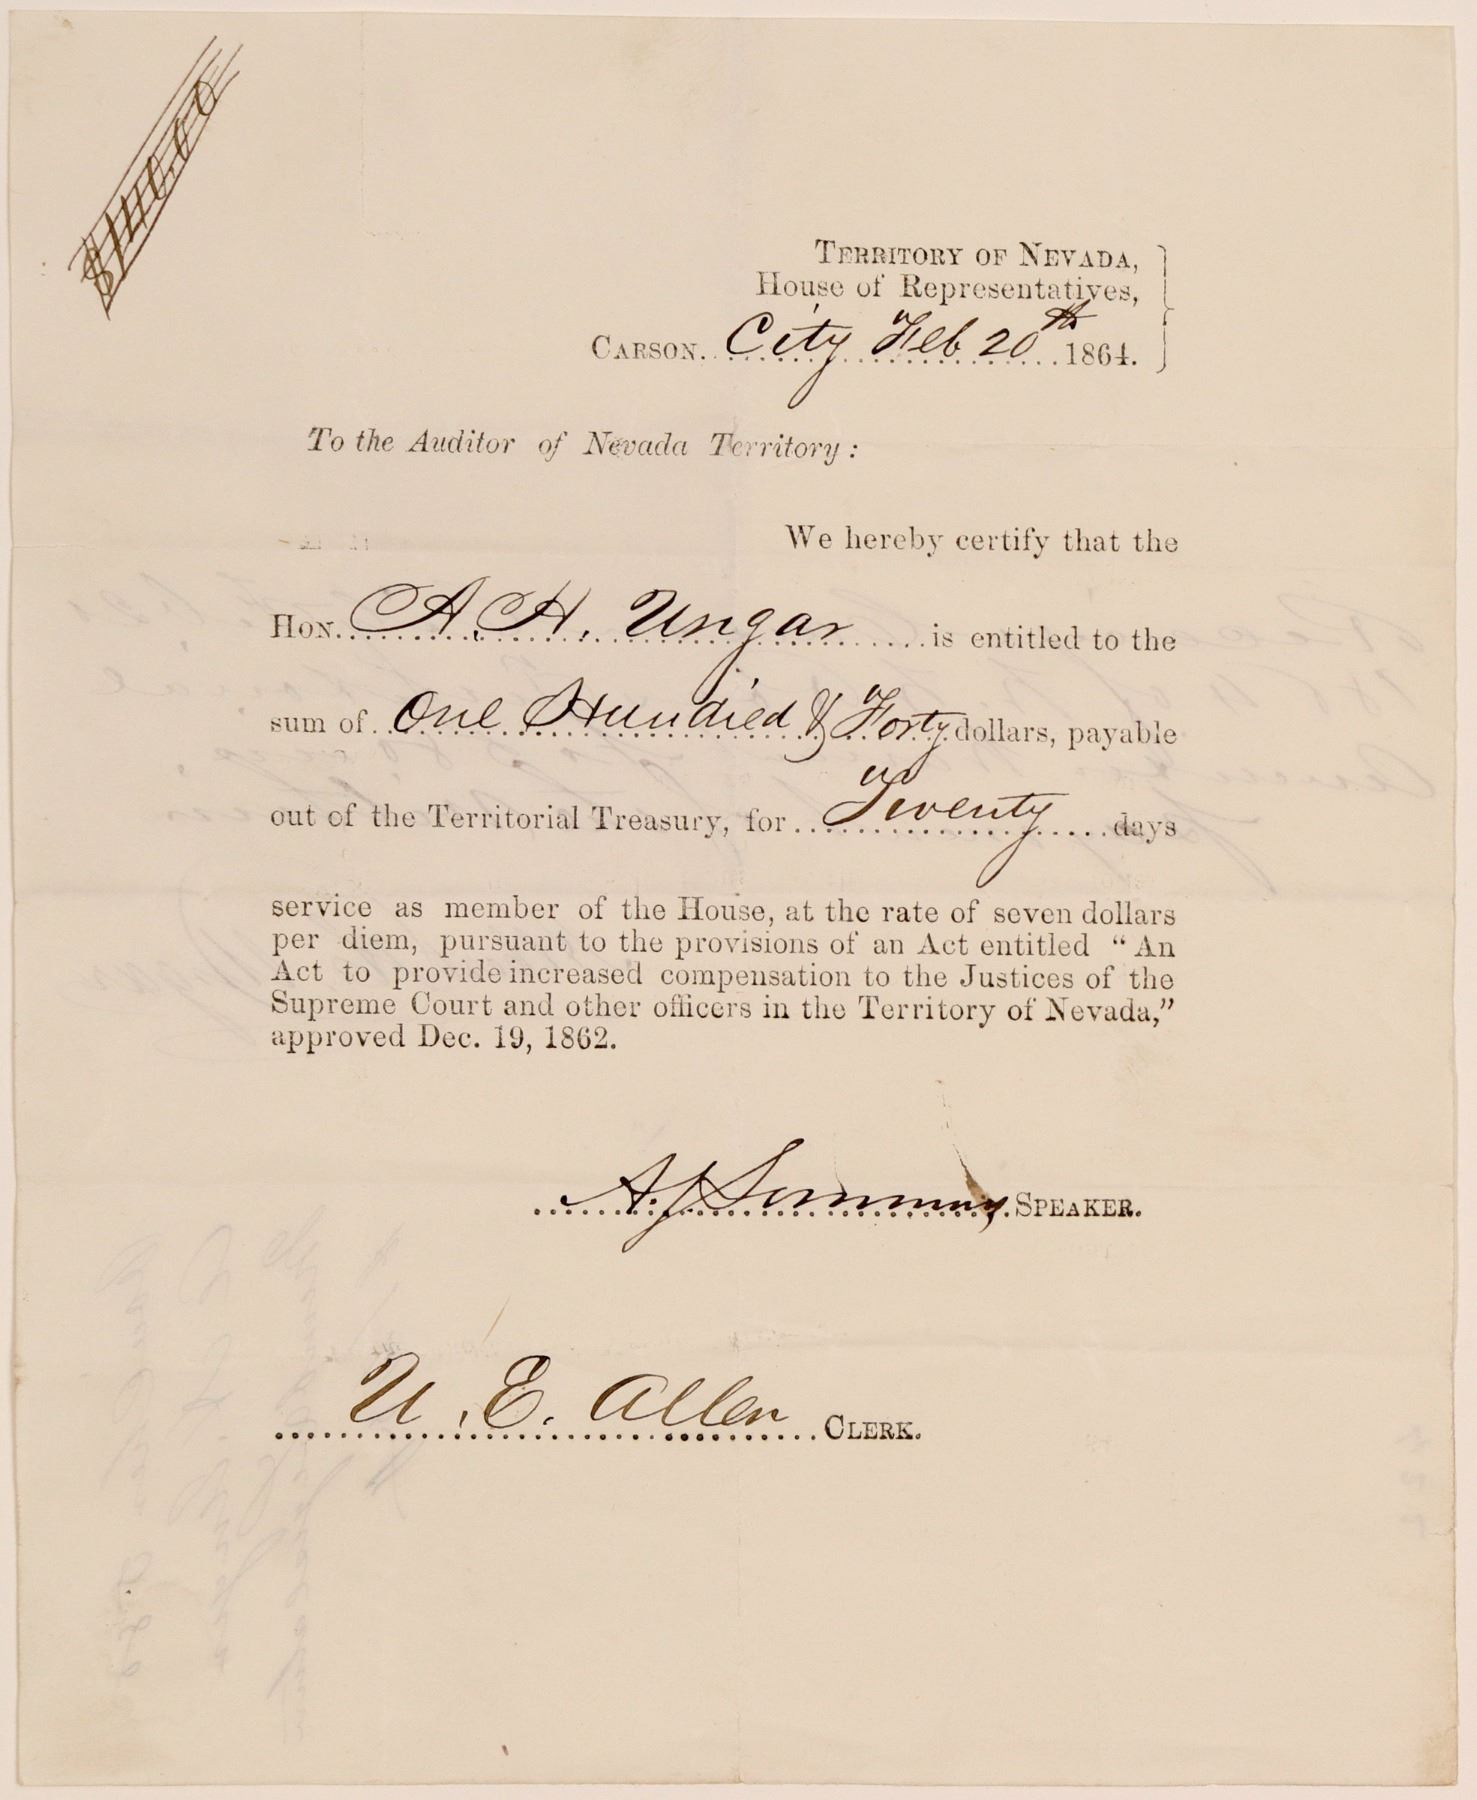 $140.00
TERRITORY OF NEVADA,
House of Representatives,
CARSON. City Feb 20th 1864.
To the Auditor of Nevada Territory:
We hereby certify that the
HON. A. H. Ungar is entitled to the
sum of One Hundred & Forty dollars, payable
out of the Territorial Treasury, for Twenty days
service as member of the House, at the rate of seven dollars
per diem, pursuant to the provisions of an Act entitled “An
Act to provide increased compensation to the Justices of the
Supreme Court and other officers in the Territory of Nevada,”
approved Dec. 19, 1862.
A. J. Simmons SPEAKER.
U. E. Allen CLERK.